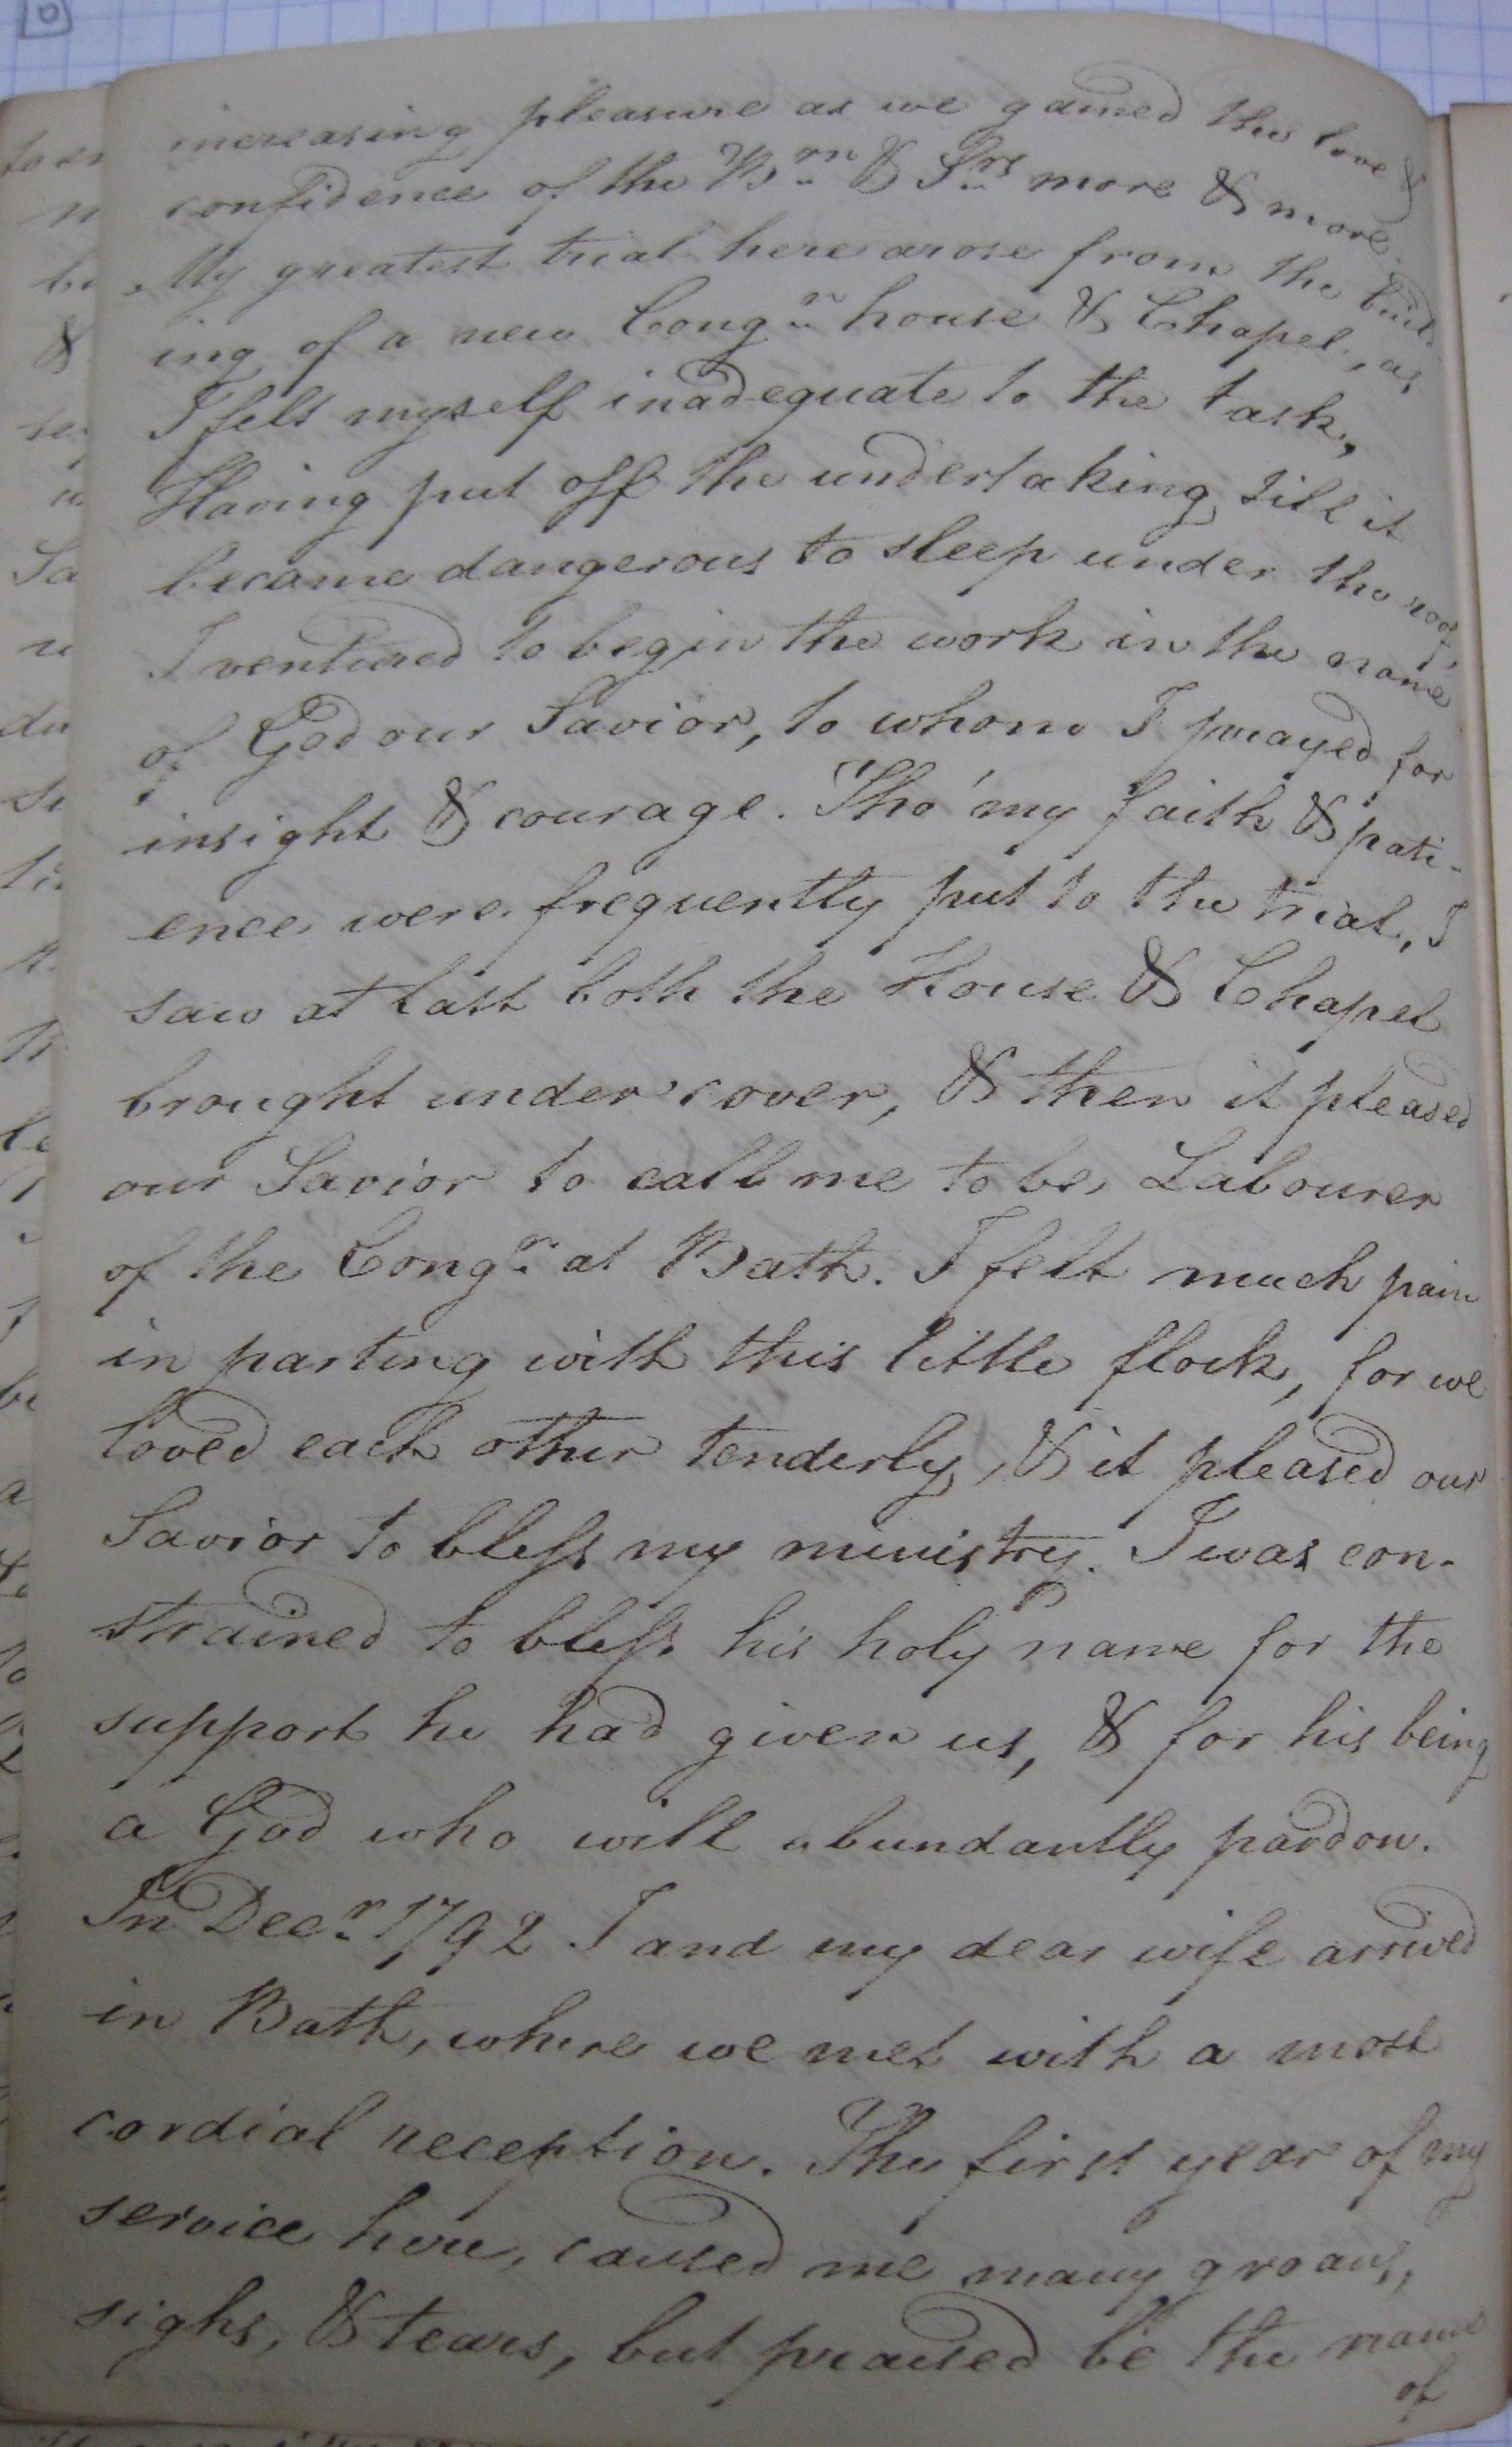 increasing pleasure as we gained the love &
confidence of the Brn & Srs more & more.
My greatest trial here arose from the build-
ing of a new Congn house & Chapel, as
I felt myself inadequate to the task,
Having put off the undertaking till it
became dangerous to sleep under the roof,
I ventured to begin the work in the name
of God our Savior, to whom I prayed for
insight & courage. Tho' my faith & pati-
ence were frequently put to the trial, I
saw at last both the House & Chapel
brought under cover, & then it pleased
our Savior to call me to be Labourer
of the Congn at Bath. I felt much pain
in parting with this little flock, for we
loved each other tenderly, & it pleased our
Savior to bless my ministry. I was con-
strained to bless his holy name for the
support he had given us, & for his being
a God who will abundantly pardon.
In Decr 1792 I and my dear wife arrived
in Bath, where we met with a most
cordial reception. The first year of my
service here, caused me many groans,
sighs, & tears, but praised be the name
of